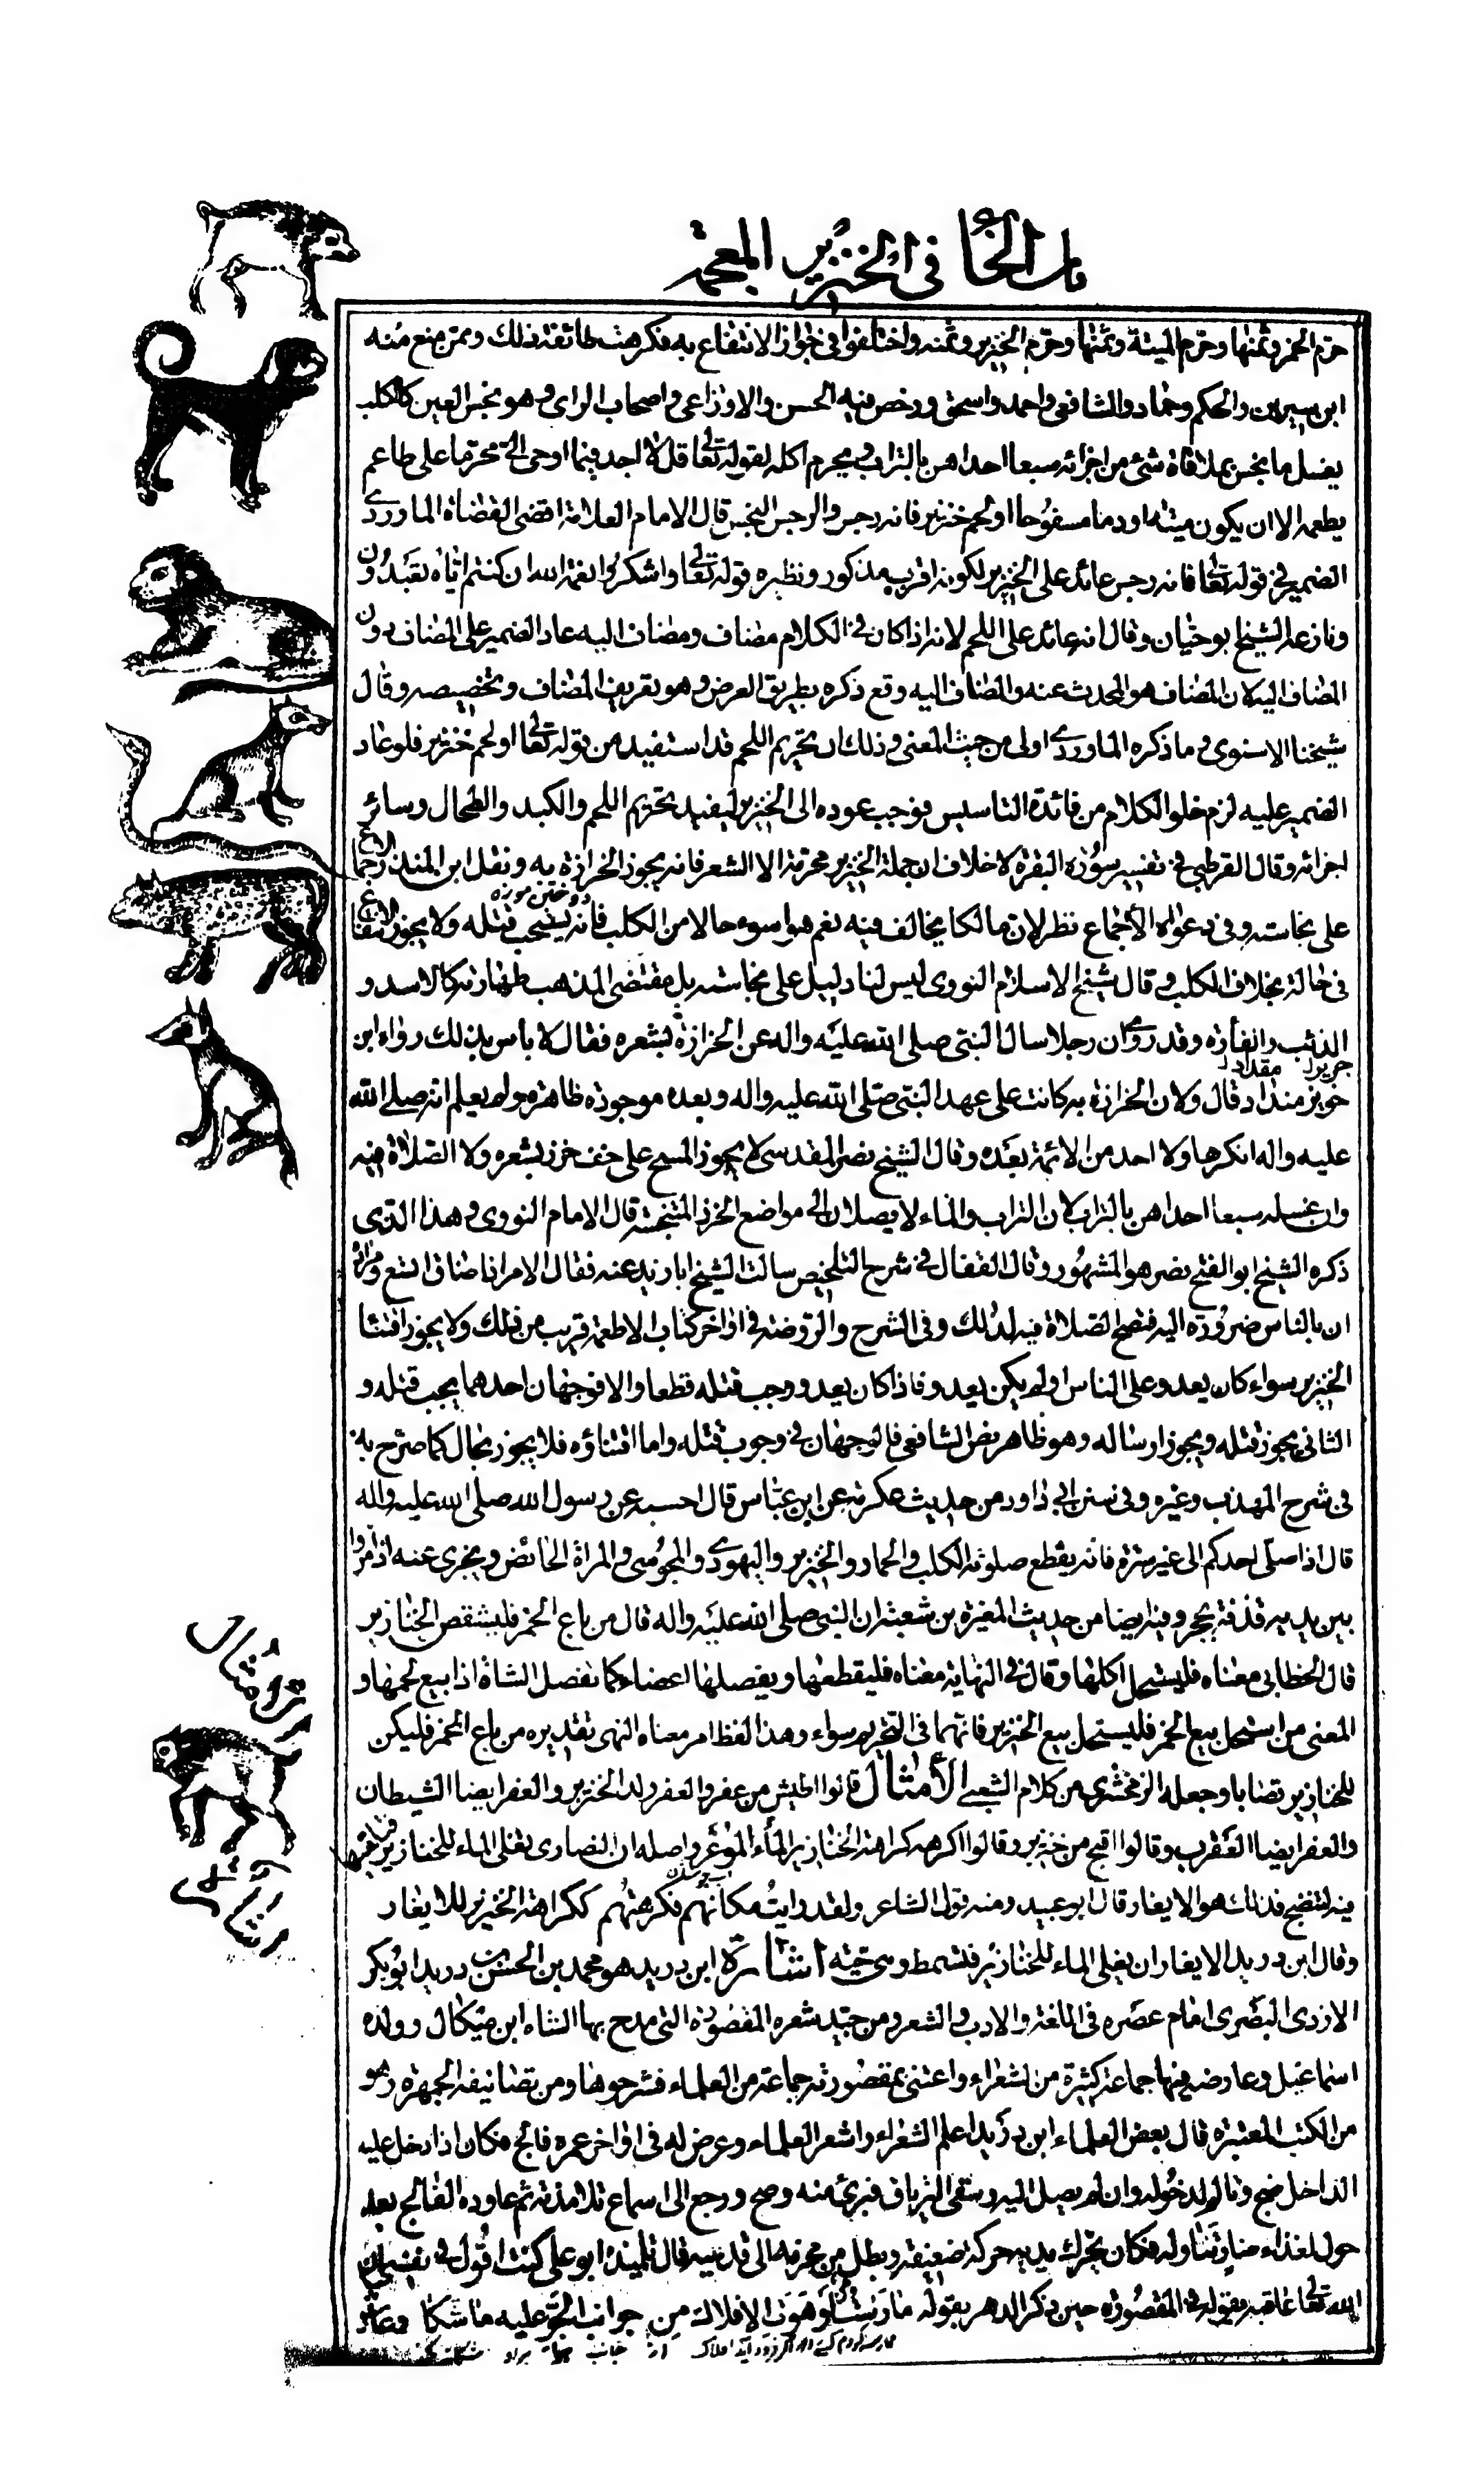 باب الخأ فى الخنزير المعجمة
حرّم الخمر وثمنها وحرّم الميتة وثمنها وحرّم الخنزير وثمنه واختلفوا فى جواز الانتفاع به فكرهت طائفة ذلك وممن منع منه
ابن سيرين والحكم وحماد والشافعى واحمد واسحق ورخص فيه الحسن والاوزاعى واصحاب الراى وهو نجس العين كالكلب
يغسل ما نجس بملاقاة شئ من اجزائه سبعا احداهن بالتراب ويحرم اكله لقوله تعالى قل لا اجد فيما اوحى الىّ محرّما على طاعم
يطعمه الا ان يكون ميتة او دما مسفوحا او لحم خنزير فانه رجس والرجس النجس قال الامام العلامة اقضى القضاة الماوردى
الضمير فى قوله تعالى فانه رجس عائد على الخنزير لكونه اقرب مذكور ونظيره قوله تعالى واشكروا نعمة الله ان كنتم اياه تعبدون
ونازعه الشيخ ابو حيان وقال انه عائد على اللحم لانه اذا كان فى الكلام مضاف ومضاف اليه عاد الضمير على المضاف دون
المضاف اليه لان المضاف هو المحدث عنه والمضاف اليه وقع ذكره بطريق العرض وهو تعريف المضاف وتخصيصه وقال
شيخنا الاسنوى وما ذكره الماوردى اولى من حيث المعنى وذلك ان تحريم اللحم قد استفيد من قوله تعالى او لحم خنزير فلو عاد
الضمير عليه لزم خلو الكلام من فائدة التاسيس فوجب عوده الى الخنزير ليفيد تحريم اللحم والكبد والطحال وسائر
اجزائه وقال القرطبى فى تفسير سورة البقرة لا خلاف ان جملة الخنزير محرمة الا الشعر فانه يجوز الخرازة به ونقل ابن المنذر الاجماع
دوختن موزه
على نجاسته وفى دعواه الاجماع نظر لان مالكا يخالف فيه نعم هو اسوء حالا من الكلب فانه يستحب قتله ولا يجوز الانتفاع
فى حالة بخلاف الكلب وقال شيخ الاسلام النووى ليس لنا دليل على نجاسته بل مقتضى المذهب طهارته كالاسد و
الذئب والفأرة وقد روى ان رجلا سال النبى صلى الله عليه واله عن الخرازة بشعره فقال لا باس بذلك رواه ابن
خويز منداد قال ولان الخرازة به كانت على عهد النبى صلى الله عليه واله وبعده موجودة ظاهرة ولم يعلم انه صلى الله
عليه واله انكرها ولا احد من الائمة بعده وقال الشيخ نصر المقدسى لا يجوز المسح على خف خرز بشعره ولا الصلاة فيه
وان غسله سبعا احداهن بالتراب لان التراب والماء لا يصلان الى مواضع الخرز المتنجسة قال الامام النووى وهذا الذى
ذكره الشيخ ابو الفتح نصر هو المشهور وقال القفال فى شرح التلخيص سالت الشيخ ابا زيد عنه فقال الامر اذا ضاق اتسع ومراده
ان بالناس ضرورة اليه فتصح الصلاة فيه لذلك وفى الشرح والروضة فى اواخر كتاب الاطعمة قريب من ذلك ولا يجوز اقتناء
الخنزير سواء كان يعدو على الناس او لم يكن يعدو فاذا كان يعدو وجب قتله قطعا والا فوجهان احدهما يجب قتله و
الثانى يجوز قتله ويجوز ارساله وهو ظاهر نص الشافعى فالوجهان فى وجوب قتله واما اقتناؤه فلا يجوز بحال كما صرّح به
فى شرح المهذب وغيره وفى سنن ابى داود من حديث عكرمة عن ابن عباس قال احسبه عن رسول الله صلى الله عليه واله
قال اذا صلى احدكم الى غير سترة فانه يقطع صلوته الكلب والحمار والخنزير واليهودى والمجوسى والمراة الحائض ويجزى عنه اذا مروا
بين يديه قذفة بحجر وفيه ايضا من حديث المغيرة بن شعبة ان النبى صلى الله عليه واله قال من باع الخمر فليشقص الخنازير
قال الخطابى معناه فليستحل اكلها وقال فى النهاية معناه فليقطعها ويفصلها اعضاء كما تفصل الشاة اذا بيع لحمها و
المعنى من استحل بيع الخمر فليستحل بيع الخنزير فانهما فى التحريم سواء وهذا لفظ امر معناه النهى تقديره من باع الخمر فليكن
للخنازير قصابا وجعله الزمخشرى من كلام الشعبى الأمثال قالوا اطيش من عفر والعفر ولد الخنزير والعفر ايضا الشيطان
والعفر ايضا العقرب وقالوا اقبح من خنزير وقالوا اكره كراهة الخنازير الماء الموغر واصله ان النصارى تغلى الماء للخنازير
فيه لتنضج فذلك هو الايغار قال ابو عبيد ومنه قول الشاعر ولقد رايت مكانهم فكرهتهم ككراهة الخنزير للايغار
وقال ابن دريد الايغار ان يغلى الماء للخنازير فتسمط وهى حية اشارة ابن دريد هو محمد بن الحسن بن دريد ابو بكر
الازدى البصرى امام عصره فى اللغة والادب والشعر ومن جيّد شعره المقصورة التى مدح بها الشاه ابن ميكال وولده
اسماعيل وعارضه فيها جماعة كثيرة من الشعراء واعتنى بمقصورته جماعة من العلماء فشرحوها ومن تصانيفه الجمهرة وهو
من الكتب المعتبرة قال بعض العلماء ابن دريد اعلم الشعراء واشعر العلماء وعرض له فى اواخر عمره فالج فكان اذا دخل عليه
الداخل ضج وتالم لدخوله وان لم يصل اليه وسقى الترياق فبرئ منه وصح ورجع الى اسماع تلامذته ثم عاوده الفالج بعد
حول لغذاء ضار تناوله فكان يحرك يديه حركة ضعيفة وبطل من محزمه الى قدميه قال تلميذه ابو على كنت اقول فى نفسى ان
الله تعالى عاقبه بقوله فى المقصورة حين ذكر الدهر بقوله مارست من لو هوت الافلاك من جوانب الجو عليه ما شكا